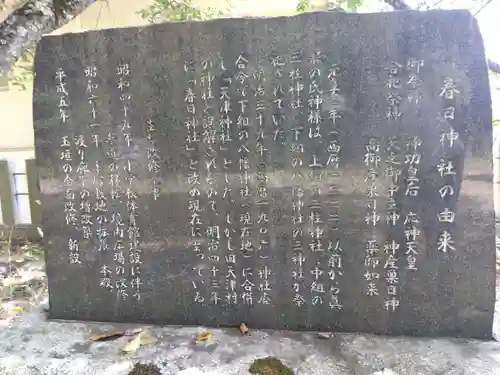 春日神社の由来
御奉神 神功皇后 応神天皇
合祀祭神 天之御中主神 神産巣日神
高御産巣日神 薬師如来
元亨二年(西暦一三二二)以前から真
の氏神様は、上組の三柱神社、中組の
三柱神社、下組の八幡神社の三神社が祭
祀されていた。
明治三十九年(西暦一九〇六)神社
合令で下組の八幡神社(現在地)に合併
し「天津神社」とした。しかし旧天津村
の神社と誤解されるので、明治四十三年
に「春日神社」と改め現在に至っている。
主な改修工事
昭和四十九年 小学校体育館建設に伴う
参道の移転、境内広場の改修
昭和六十一年 敷地の拡張 本殿
渡り殿の増改築
平成五年 玉垣の全面改修、新設